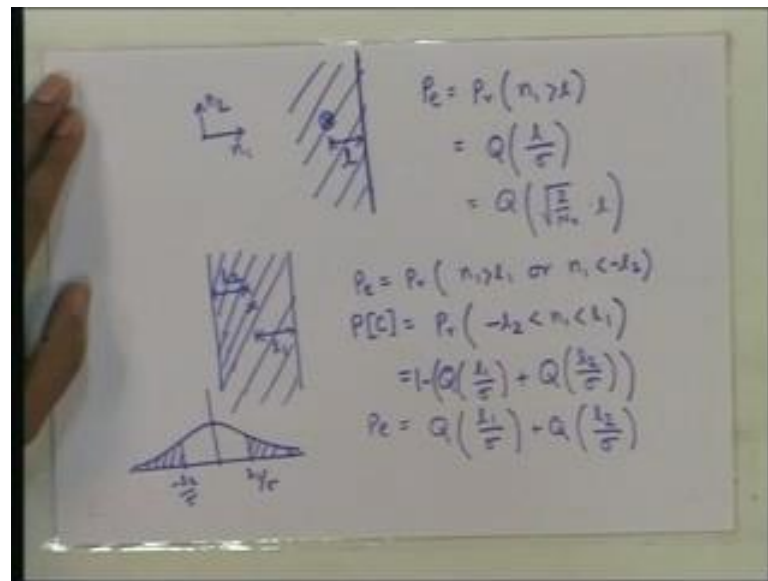 n₂
n₁
l
Pe = Pr (n₁ > l)
= Q(l/σ)
= Q(√(2/N₀) · l)
l₂
l₁
Pe = Pr (n₁ > l₁ or n₁ < -l₂)
P[C] = Pr (-l₂ < n₁ < l₁)
= 1-(Q(l₁/σ) + Q(l₂/σ))
Pe = Q(l₁/σ) + Q(l₂/σ)
-l₂/σ l₁/σ